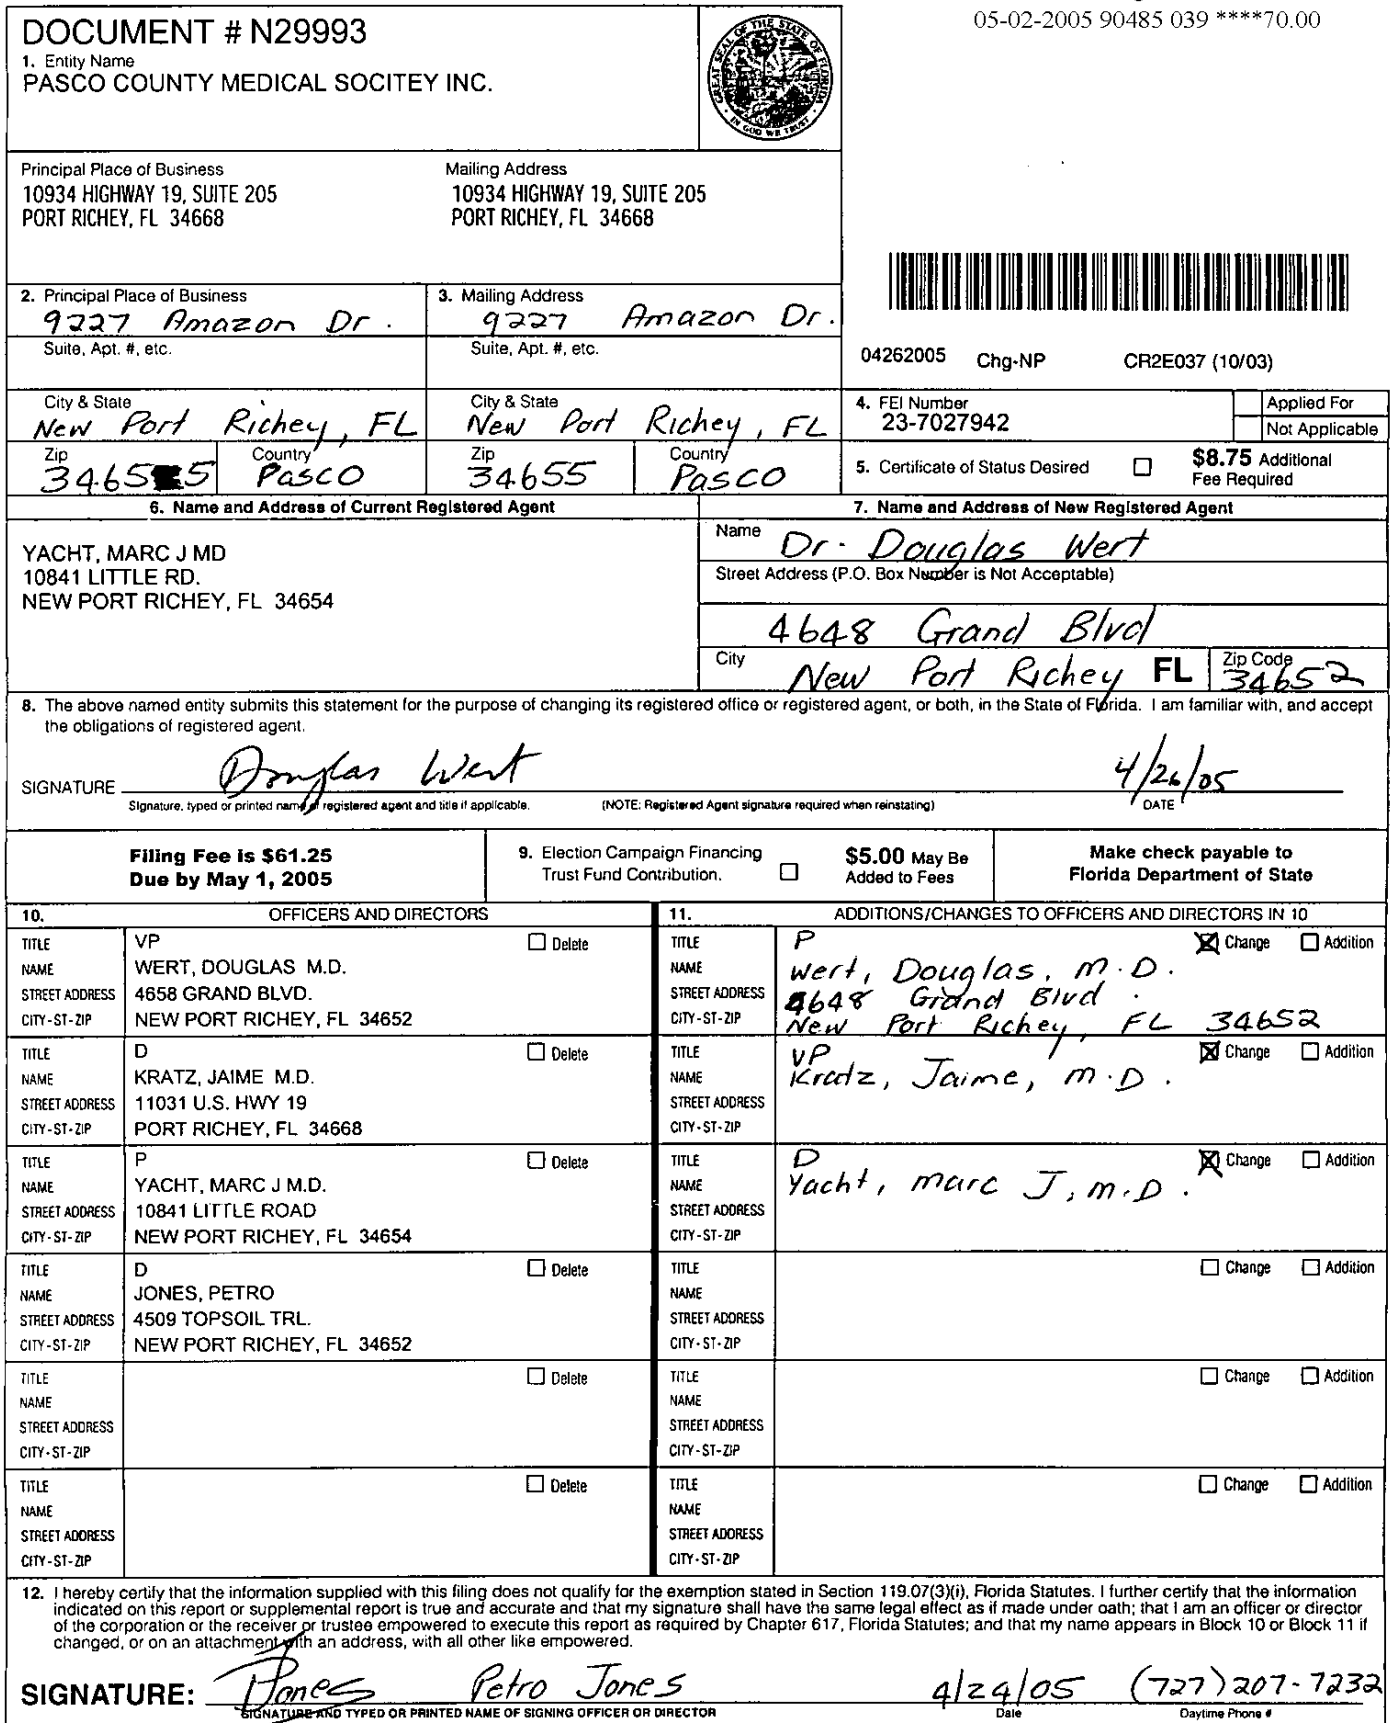 05-02-2005 90485 039 ****70.00
DOCUMENT # N29993
1. Entity Name
PASCO COUNTY MEDICAL SOCITEY INC.
GREAT SEAL OF THE STATE OF FLORIDA
IN GOD WE TRUST
Principal Place of Business
10934 HIGHWAY 19, SUITE 205
PORT RICHEY, FL 34668
Mailing Address
10934 HIGHWAY 19, SUITE 205
PORT RICHEY, FL 34668
2. Principal Place of Business
9227 Amazon Dr.
3. Mailing Address
9227 Amazon Dr.
Suite, Apt. #, etc.
Suite, Apt. #, etc.
04262005 Chg-NP CR2E037 (10/03)
City & State
New Port Richey, FL
City & State
New Port Richey, FL
Zip
34655
Country
Pasco
Zip
34655
Country
Pasco
4. FEI Number
23-7027942
Applied For
Not Applicable
5. Certificate of Status Desired
$8.75 Additional
Fee Required
6. Name and Address of Current Registered Agent
YACHT, MARC J MD
10841 LITTLE RD.
NEW PORT RICHEY, FL 34654
7. Name and Address of New Registered Agent
Name
Dr. Douglas Wert
Street Address (P.O. Box Number is Not Acceptable)
4648 Grand Blvd
City
New Port Richey FL
Zip Code
34652
8. The above named entity submits this statement for the purpose of changing its registered office or registered agent, or both, in the State of Florida. I am familiar with, and accept
the obligations of registered agent.
SIGNATURE Douglas Wert 4/26/05
Signature, typed or printed name of registered agent and title if applicable. (NOTE: Registered Agent signature required when reinstating) DATE
Filing Fee is $61.25
Due by May 1, 2005
9. Election Campaign Financing
Trust Fund Contribution.
$5.00 May Be
Added to Fees
Make check payable to
Florida Department of State
10. OFFICERS AND DIRECTORS
11. ADDITIONS/CHANGES TO OFFICERS AND DIRECTORS IN 10
TITLE VP Delete
NAME WERT, DOUGLAS M.D.
STREET ADDRESS 4658 GRAND BLVD.
CITY-ST-ZIP NEW PORT RICHEY, FL 34652
TITLE P Change Addition
NAME Wert, Douglas, M.D.
STREET ADDRESS 4648 Grand Blvd.
CITY-ST-ZIP New Port Richey, FL 34652
TITLE D Delete
NAME KRATZ, JAIME M.D.
STREET ADDRESS 11031 U.S. HWY 19
CITY-ST-ZIP PORT RICHEY, FL 34668
TITLE VP Change Addition
NAME Kratz, Jaime, M.D.
STREET ADDRESS
CITY-ST-ZIP
TITLE P Delete
NAME YACHT, MARC J M.D.
STREET ADDRESS 10841 LITTLE ROAD
CITY-ST-ZIP NEW PORT RICHEY, FL 34654
TITLE D Change Addition
NAME Yacht, Marc J, M.D.
STREET ADDRESS
CITY-ST-ZIP
TITLE D Delete
NAME JONES, PETRO
STREET ADDRESS 4509 TOPSOIL TRL.
CITY-ST-ZIP NEW PORT RICHEY, FL 34652
TITLE Change Addition
NAME
STREET ADDRESS
CITY-ST-ZIP
TITLE Delete
NAME
STREET ADDRESS
CITY-ST-ZIP
TITLE Change Addition
NAME
STREET ADDRESS
CITY-ST-ZIP
TITLE Delete
NAME
STREET ADDRESS
CITY-ST-ZIP
TITLE Change Addition
NAME
STREET ADDRESS
CITY-ST-ZIP
12. I hereby certify that the information supplied with this filing does not qualify for the exemption stated in Section 119.07(3)(i), Florida Statutes. I further certify that the information
indicated on this report or supplemental report is true and accurate and that my signature shall have the same legal effect as if made under oath; that I am an officer or director
of the corporation or the receiver or trustee empowered to execute this report as required by Chapter 617, Florida Statutes; and that my name appears in Block 10 or Block 11 if
changed, or on an attachment with an address, with all other like empowered.
SIGNATURE: PJones Petro Jones 4/24/05 (727)207-7232
SIGNATURE AND TYPED OR PRINTED NAME OF SIGNING OFFICER OR DIRECTOR Date Daytime Phone #